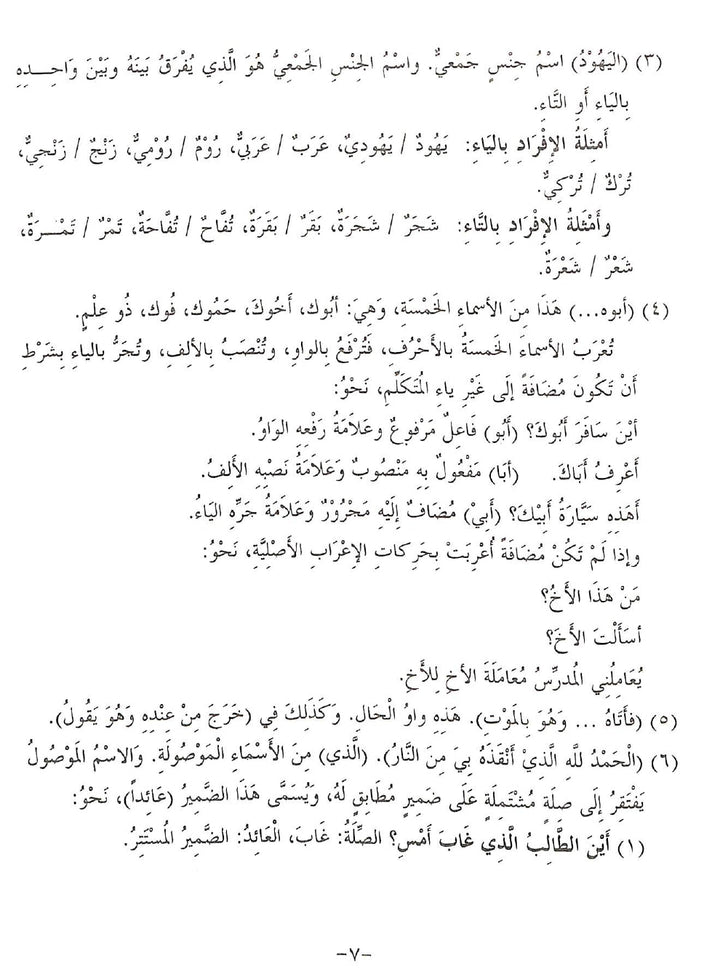 (٣) (اليَهُوْدُ) اسْمُ جِنْسٍ جَمْعِيٌّ. واسْمُ الجِنْسِ الجَمْعِيُّ هُوَ الَّذِي يُفْرَقُ بَيْنَهُ وبَيْنَ وَاحِــدِهِ
بِاليَاءِ أَوِ التَّاءِ.
أَمثِلَةُ الإِفْرَادِ بِاليَاءِ: يَهُودٌ / يَهُودِيٌ، عَرَبٌ / عَرَبيٌّ، رُوْمٌ / رُوْمِيٌّ، زَنْجٌ / زَنْجِيٌّ،
تُرْكٌ / تُرْكِيٌّ.
وأَمْثِلَةُ الإِفْرَادِ بالتَّاءِ: شَجَرٌ / شَجَرَةٌ، بَقَرٌ / بَقَرَةٌ، تُفَّاحٌ / تُفَّاحَةٌ، تَمْرٌ / تَمْــرَةٌ،
شَعْرٌ / شَعْرَةٌ.
(٤) (أبوه...) هَذَا مِنَ الأسماءِ الخَمْسَةِ، وَهِيَ: أبُوك، أَخُوكَ، حَمُوك، فُوك، ذُو عِلْمٍ.
تُعْرَبُ الأسماءُ الخَمسَةُ بالأَحْرُفِ، فَتُرْفَعُ بالواوِ، وتُنْصَبُ بالأَلِفِ، وتُجَرُّ بالياءِ بِشَرْطِ
أَنْ تَكُونَ مُضَافَةً إلَى غَيْرِ ياءِ المُتَكَلِّمِ، نَحْوُ:
أيْنَ سافَرَ أَبُوكَ؟ (أَبُو) فَاعلٌ مَرْفوعٌ وعَلاَمَةُ رَفْعِهِ الوَاوُ.
أَعْرِفُ أَبَاكَ. (أبَا) مَفْعُولٌ بِهِ مَنْصُوبٌ وَعَلاَمَةُ نَصْبِهِ الأَلِفُ.
أَهَذِهِ سَيَّارَةُ أَبِيْكَ؟ (أَبِيْ) مُضَافٌ إلَيْهِ مَجْرُوْرٌ وَعَلاَمَةُ جَرِّهِ اليَاءُ.
وإذا لَمْ تَكُنْ مُضَافَةً أُعْرِبَتْ بِحَرَكاتِ الإعْرَابِ الأَصْلِيَّةِ، نَحْوُ:
مَنْ هَذَا الأَخُ؟
أسَأَلْتَ الأَخَ؟
يُعَامِلُنِي المُدرِّسُ مُعَامَلَةَ الأخِ لِلأَخِ.
(٥) (فأَتَاهُ ... وَهُوَ بِالمَوْتِ). هَذِهِ واوُ الْحَالِ. وَكَذَلِكَ فِي (خَرَجَ مِنْ عِنْدِهِ وَهُوَ يَقُولُ).
(٦) (الْحَمْدُ للهِ الَّذِيْ أَنْقَذَهُ بِيَ مِنَ النَّارُ). (الذي) مِنَ الأَسْمَاءِ الْمَوْصُولَةِ. وَالاسْمُ الْمَوْصُولُ
يَفْتَقِرُ إلَى صِلَةٍ مُشْتَمِلَةٍ عَلَى ضَمِيرٍ مُطَابِقٍ لَهُ، وَيُسَمَّى هَذَا الضَّمِيرُ (عَائِداً)، نَحْوُ:
(١) أَيْنَ الطَّالِبُ الَّذِي غَابَ أَمْسِ؟ الصِّلَةُ: غَابَ، الْعَائِدُ: الضَّمِيرُ الْمُسْتَتِرُ.
-٧-